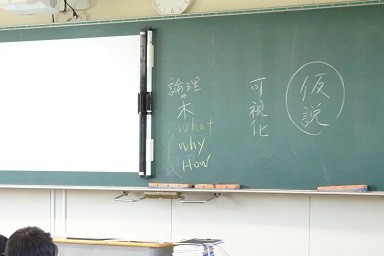 仮説
可視化
論理の木
what
why
How